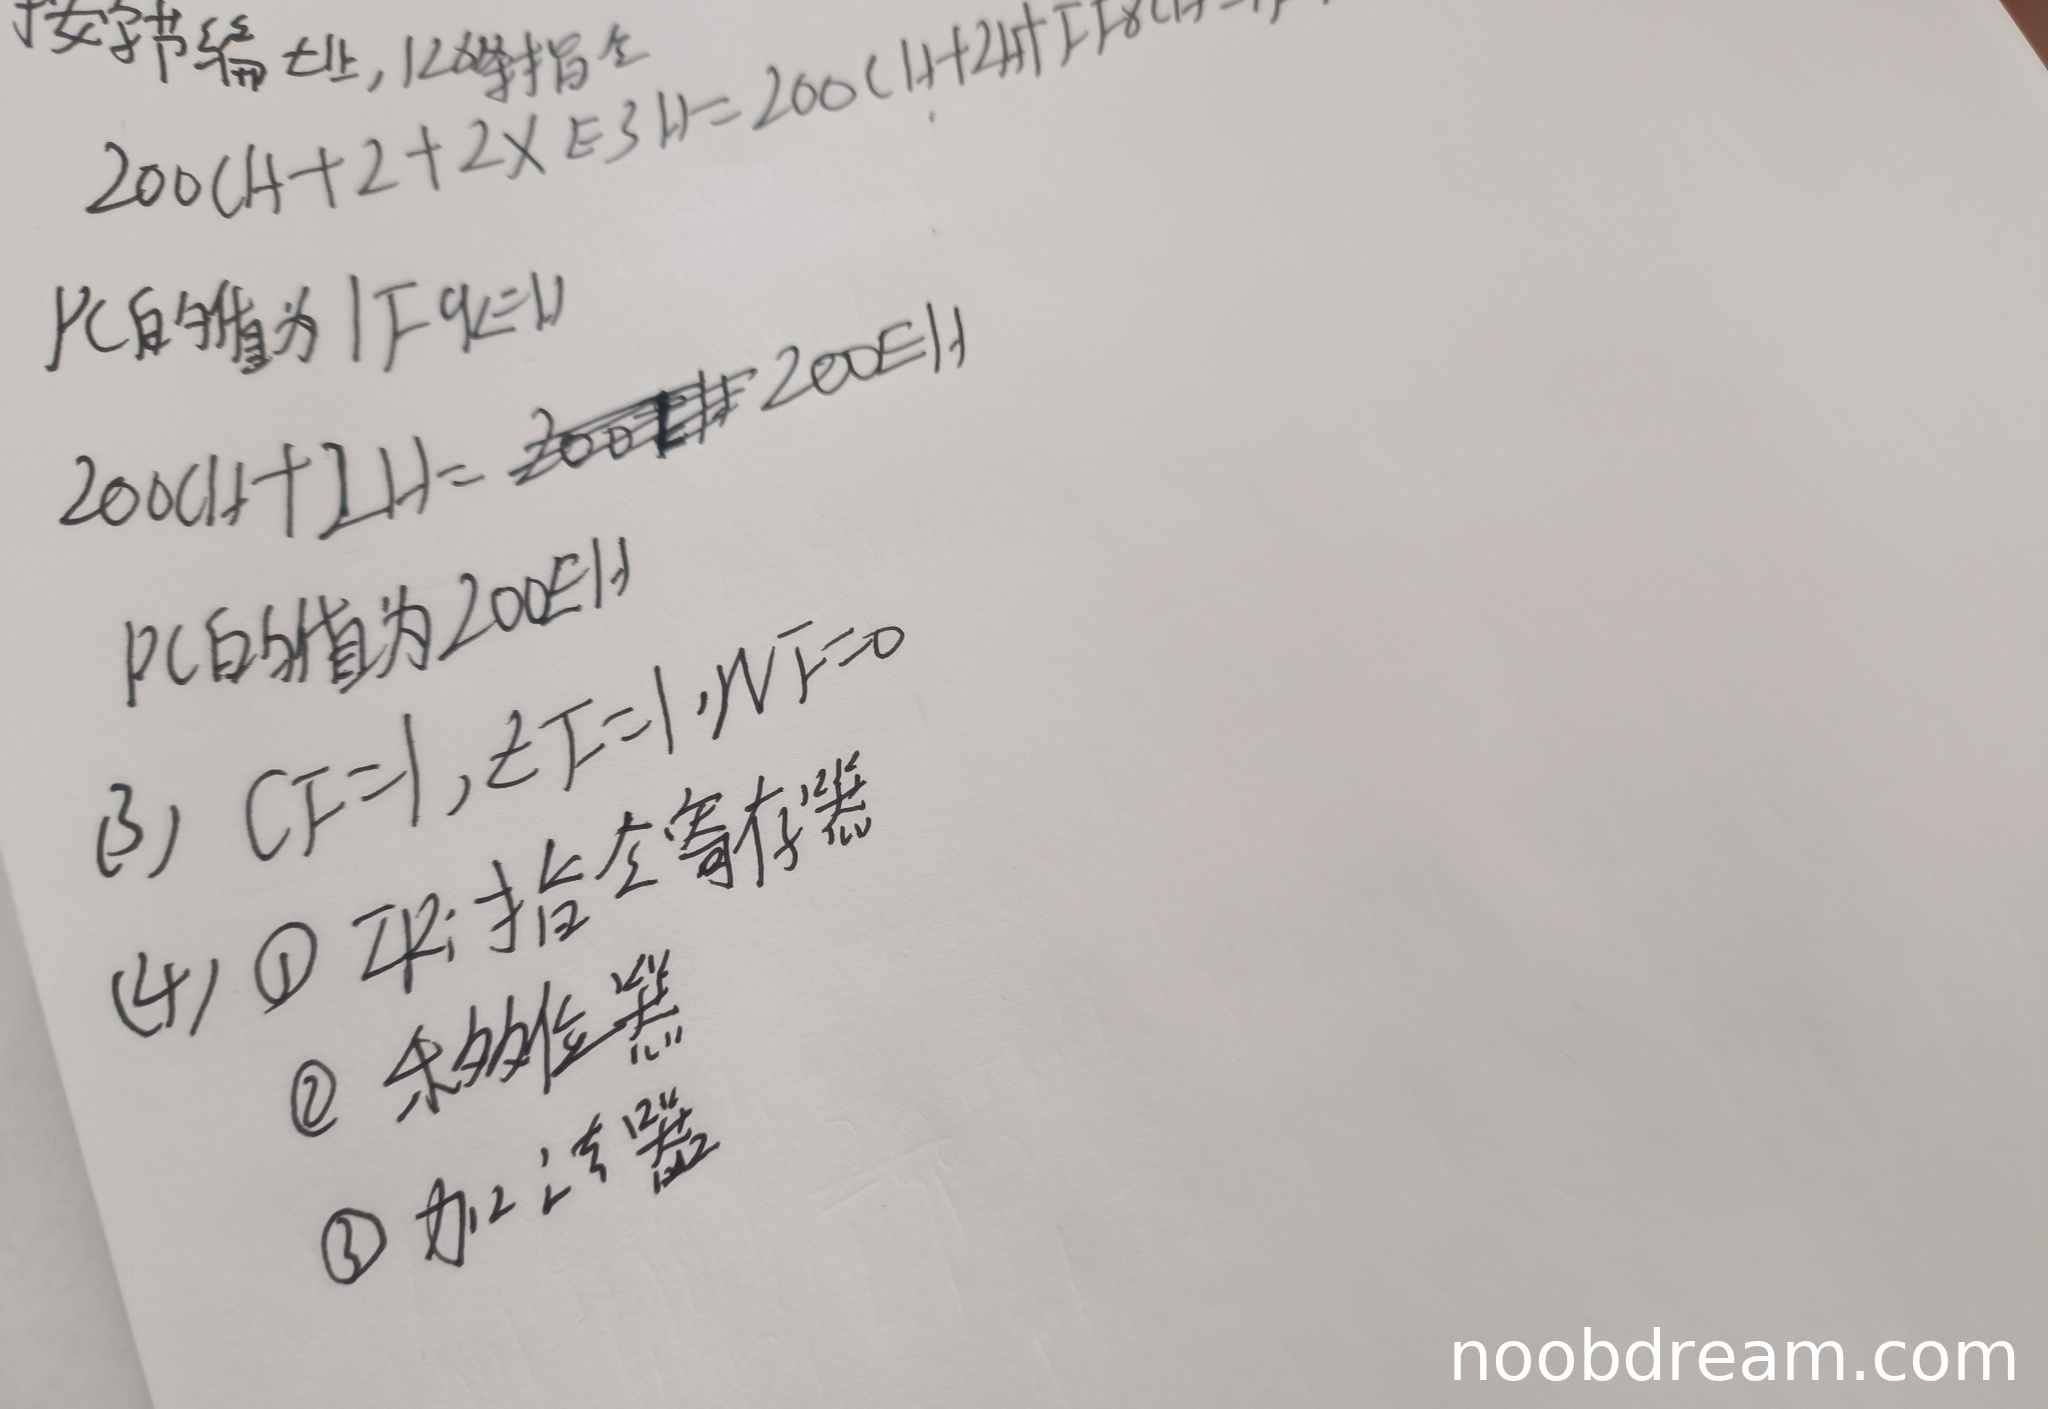 按字节编址,128条指令
200CH+2+2×E3H=200CH+2H+FF8CH=1F
PC的值为1F9CH
200CH+2H=200EH
PC的值为200EH
(3) CF=1,ZF=1,NF=0
(4) ① IR:指令寄存器
② 移位器
③ 加法器
noobdream.com